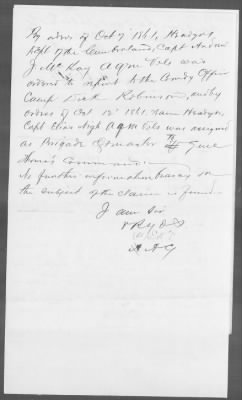 By order of Oct 7 1861, Headqrs
Dept of the Cumberland, Capt Andrew
J. McKay A Q M Vols was
ordered to report to the Comdg Officer
Camp Dick Robinson, and by
orders of Oct 12" 1861. Same Headqrs
Capt Elias Nigh A Q M Vols was assigned
as Brigade Qrmaster to Genl
Thomas's Command.
No further information bearing on
the subject of the claim is found
I am Sir
A A G